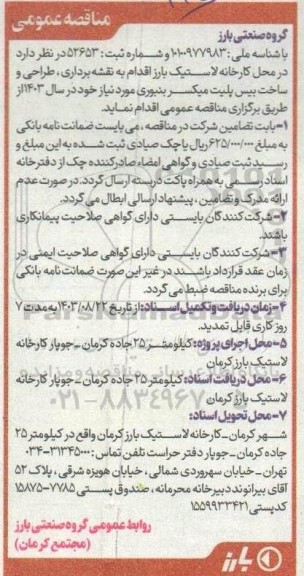 مناقصه عمومی
گروه صنعتی بارز
با شناسه ملی: ۱۰۱۰۰۹۷۷۹۸۳ و شماره ثبت: ۵۲۶۵۳ در نظر دارد
در محل کارخانه لاستیک بارز اقدام به نقشه برداری، طراحی و
ساخت بیس پلیت میکسر بنبوری مورد نیاز خود در سال ۱۴۰۳ از
طریق برگزاری مناقصه عمومی اقدام نماید.
۱-بابت تضامین شرکت در مناقصه، می بایست ضمانت نامه بانکی
به مبلغ ۶۲۵/۰۰۰/۰۰۰ ریال یا چک صیادی ثبت شده به این مبلغ و
رسید ثبت صیادی و گواهی امضاء صادرکننده چک از دفترخانه
اسناد رسمی به همراه پاکت دربسته ارسال گردد. در صورت عدم
ارائه مدرک و تضامین، پیشنهاد ارسالی ابطال می گردد.
۲-شرکت کنندگان بایستی دارای گواهی صلاحیت پیمانکاری
باشند.
۳-شرکت کنندگان بایستی دارای گواهی صلاحیت ایمنی در
زمان عقد قرارداد باشند در غیر این صورت ضمانت نامه بانکی
برای برنده مناقصه ضبط می گردد.
۴-زمان دریافت و تکمیل اسناد: از تاریخ ۱۴۰۳/۰۸/۲۲ به مدت ۷
روز کاری قابل تمدید.
۵-محل اجرای پروژه: کیلومتر ۲۵ جاده کرمان _ جوپار کارخانه
لاستیک بارز کرمان
۶-محل دریافت اسناد: کیلومتر ۲۵ جاده کرمان _ جوپار کارخانه
لاستیک بارز کرمان
۷-محل تحویل اسناد:
شهر کرمان _ کارخانه لاستیک بارز کرمان واقع در کیلومتر ۲۵
جاده کرمان _ جوپار دفتر حراست تلفن تماس: ۳۱۳۴۵۰۰۰-۰۳۴
تهران _ خیابان سهروردی شمالی، خیابان هویزه شرقی، پلاک ۵۲
آقای بیرانوند دبیرخانه محرمانه، صندوق پستی ۷۷۸۵-۱۵۸۷۵
کدپستی ۱۵۵۹۹۳۳۴۲۱
روابط عمومی گروه صنعتی بارز
(مجتمع کرمان)
بارز
۰۲۱-۸۸۳۴۹۶۷